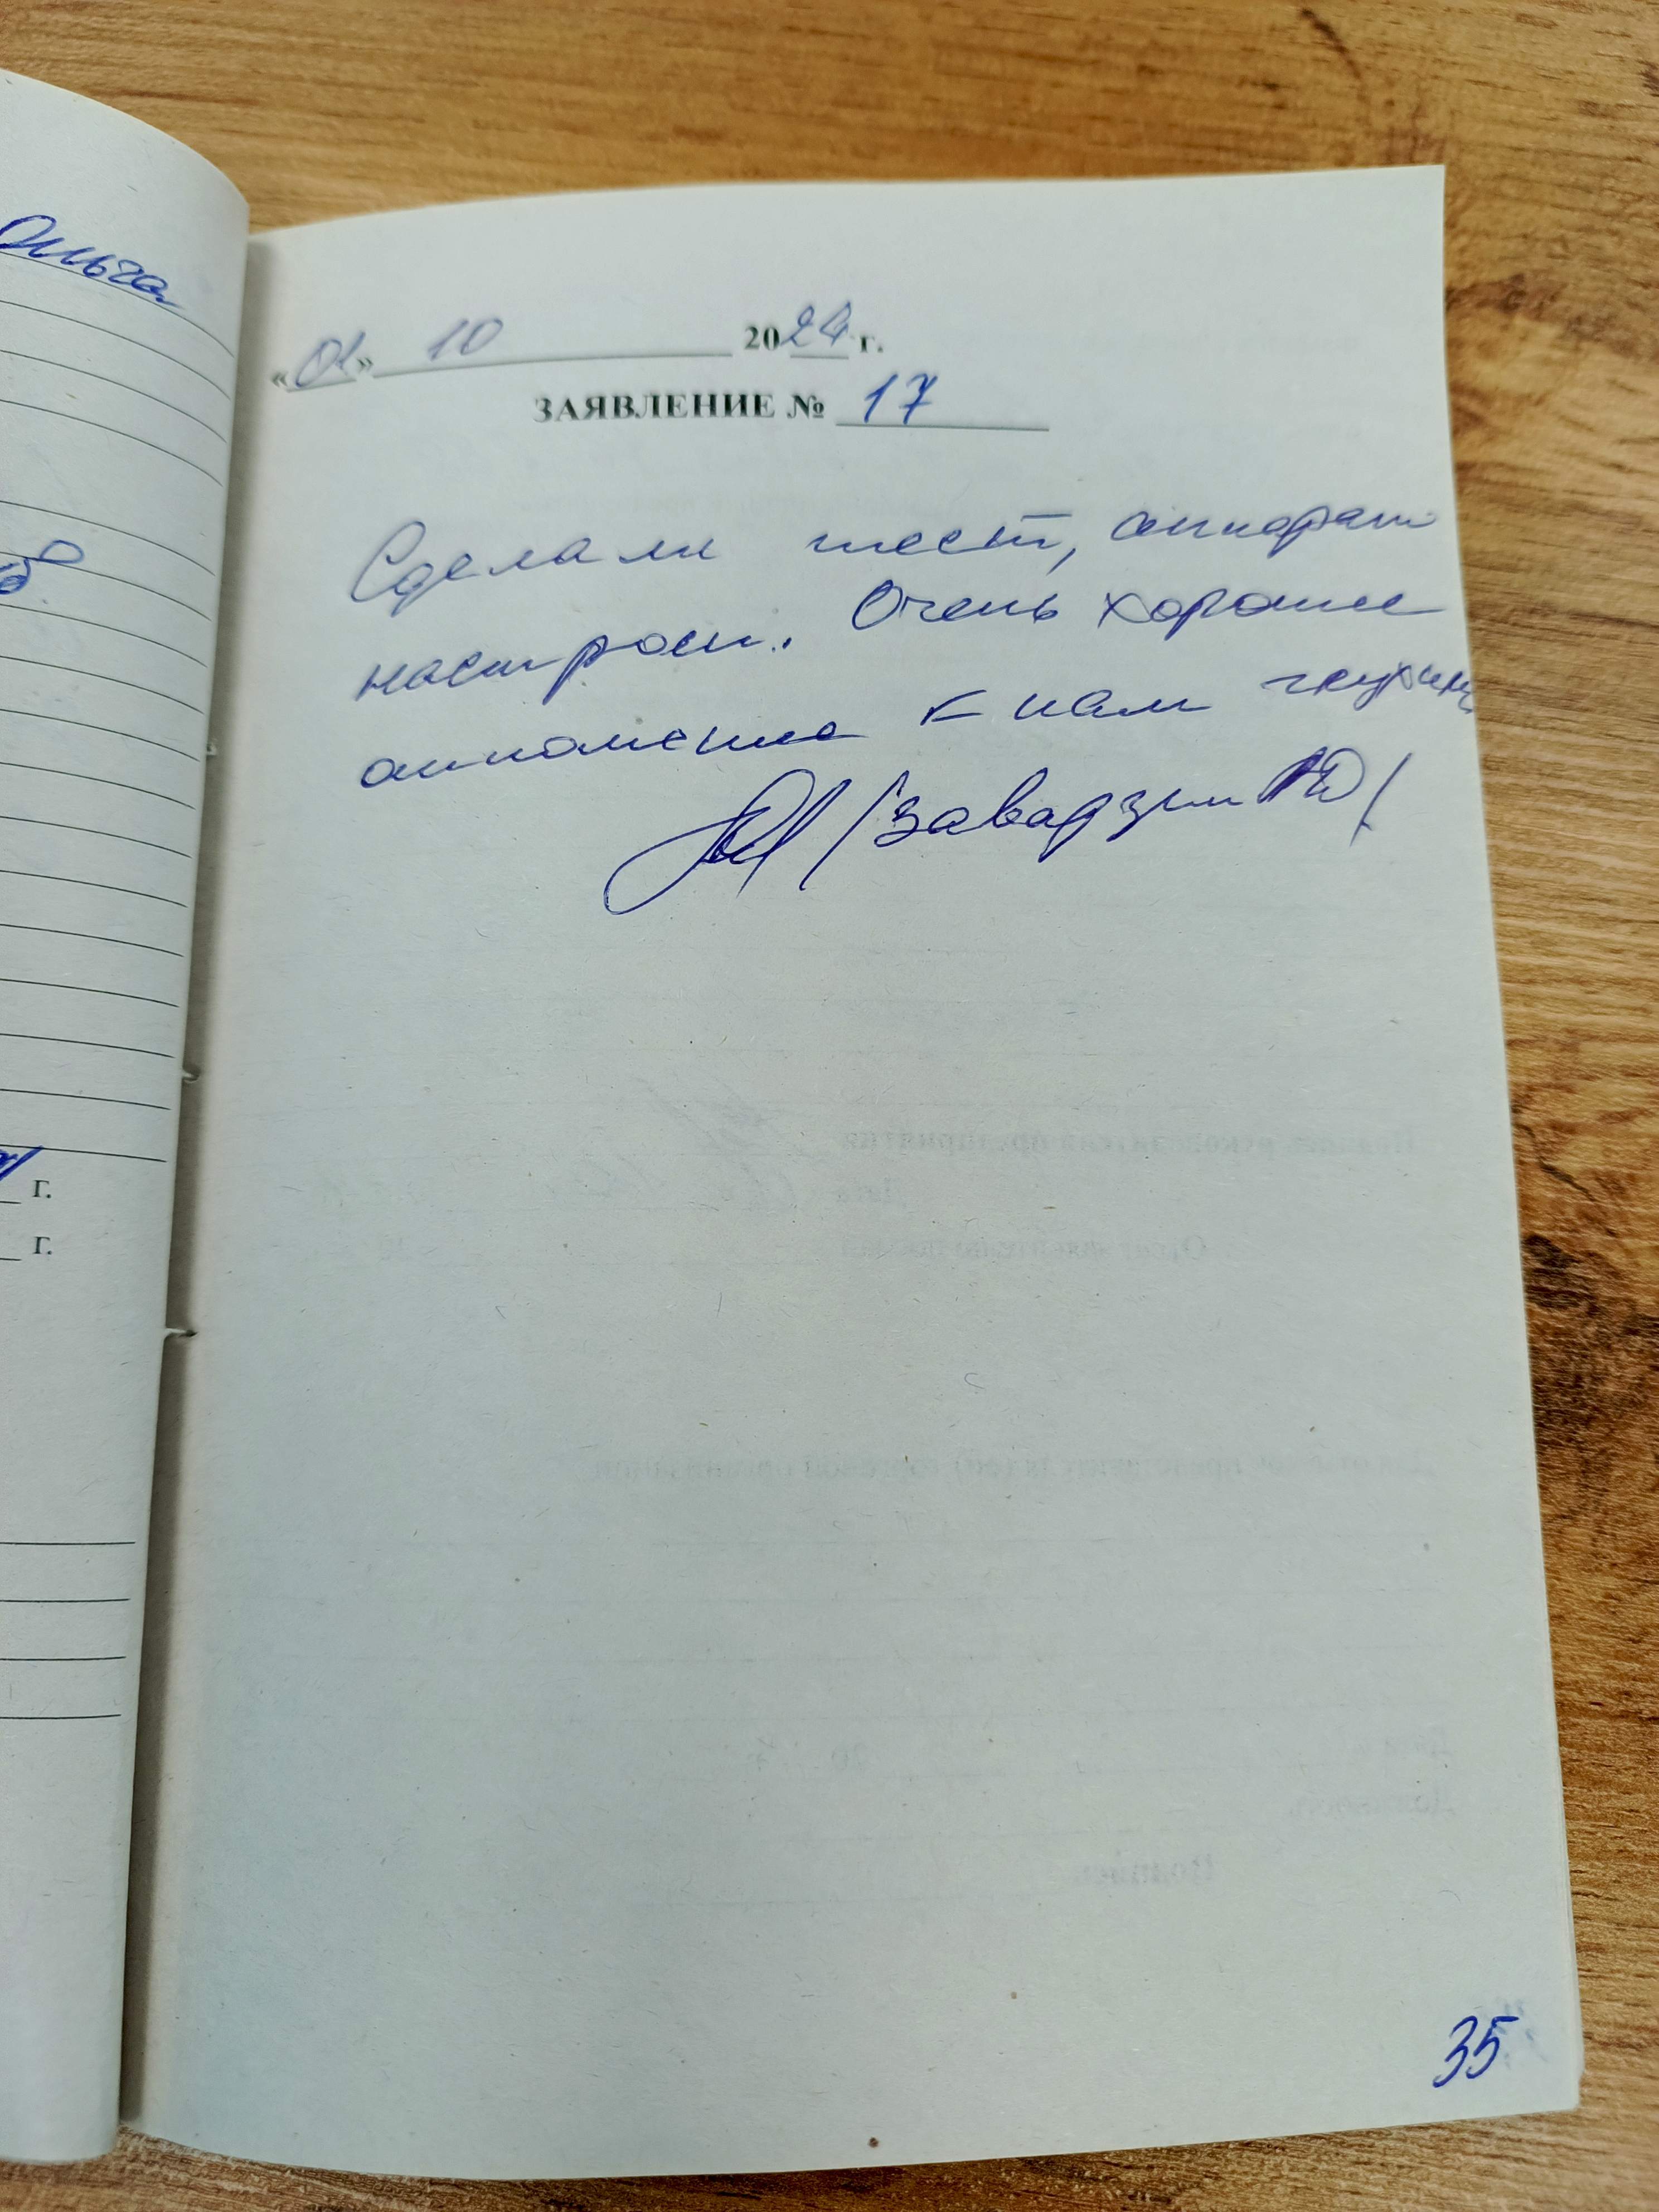 Ольга
«01» 10 2024 г.
ЗАЯВЛЕНИЕ № 17
Сделали тест, аппарат
настроен. Очень хорошее
отношение к нам глухим
/Завадзин Ю/
г.
г.
35